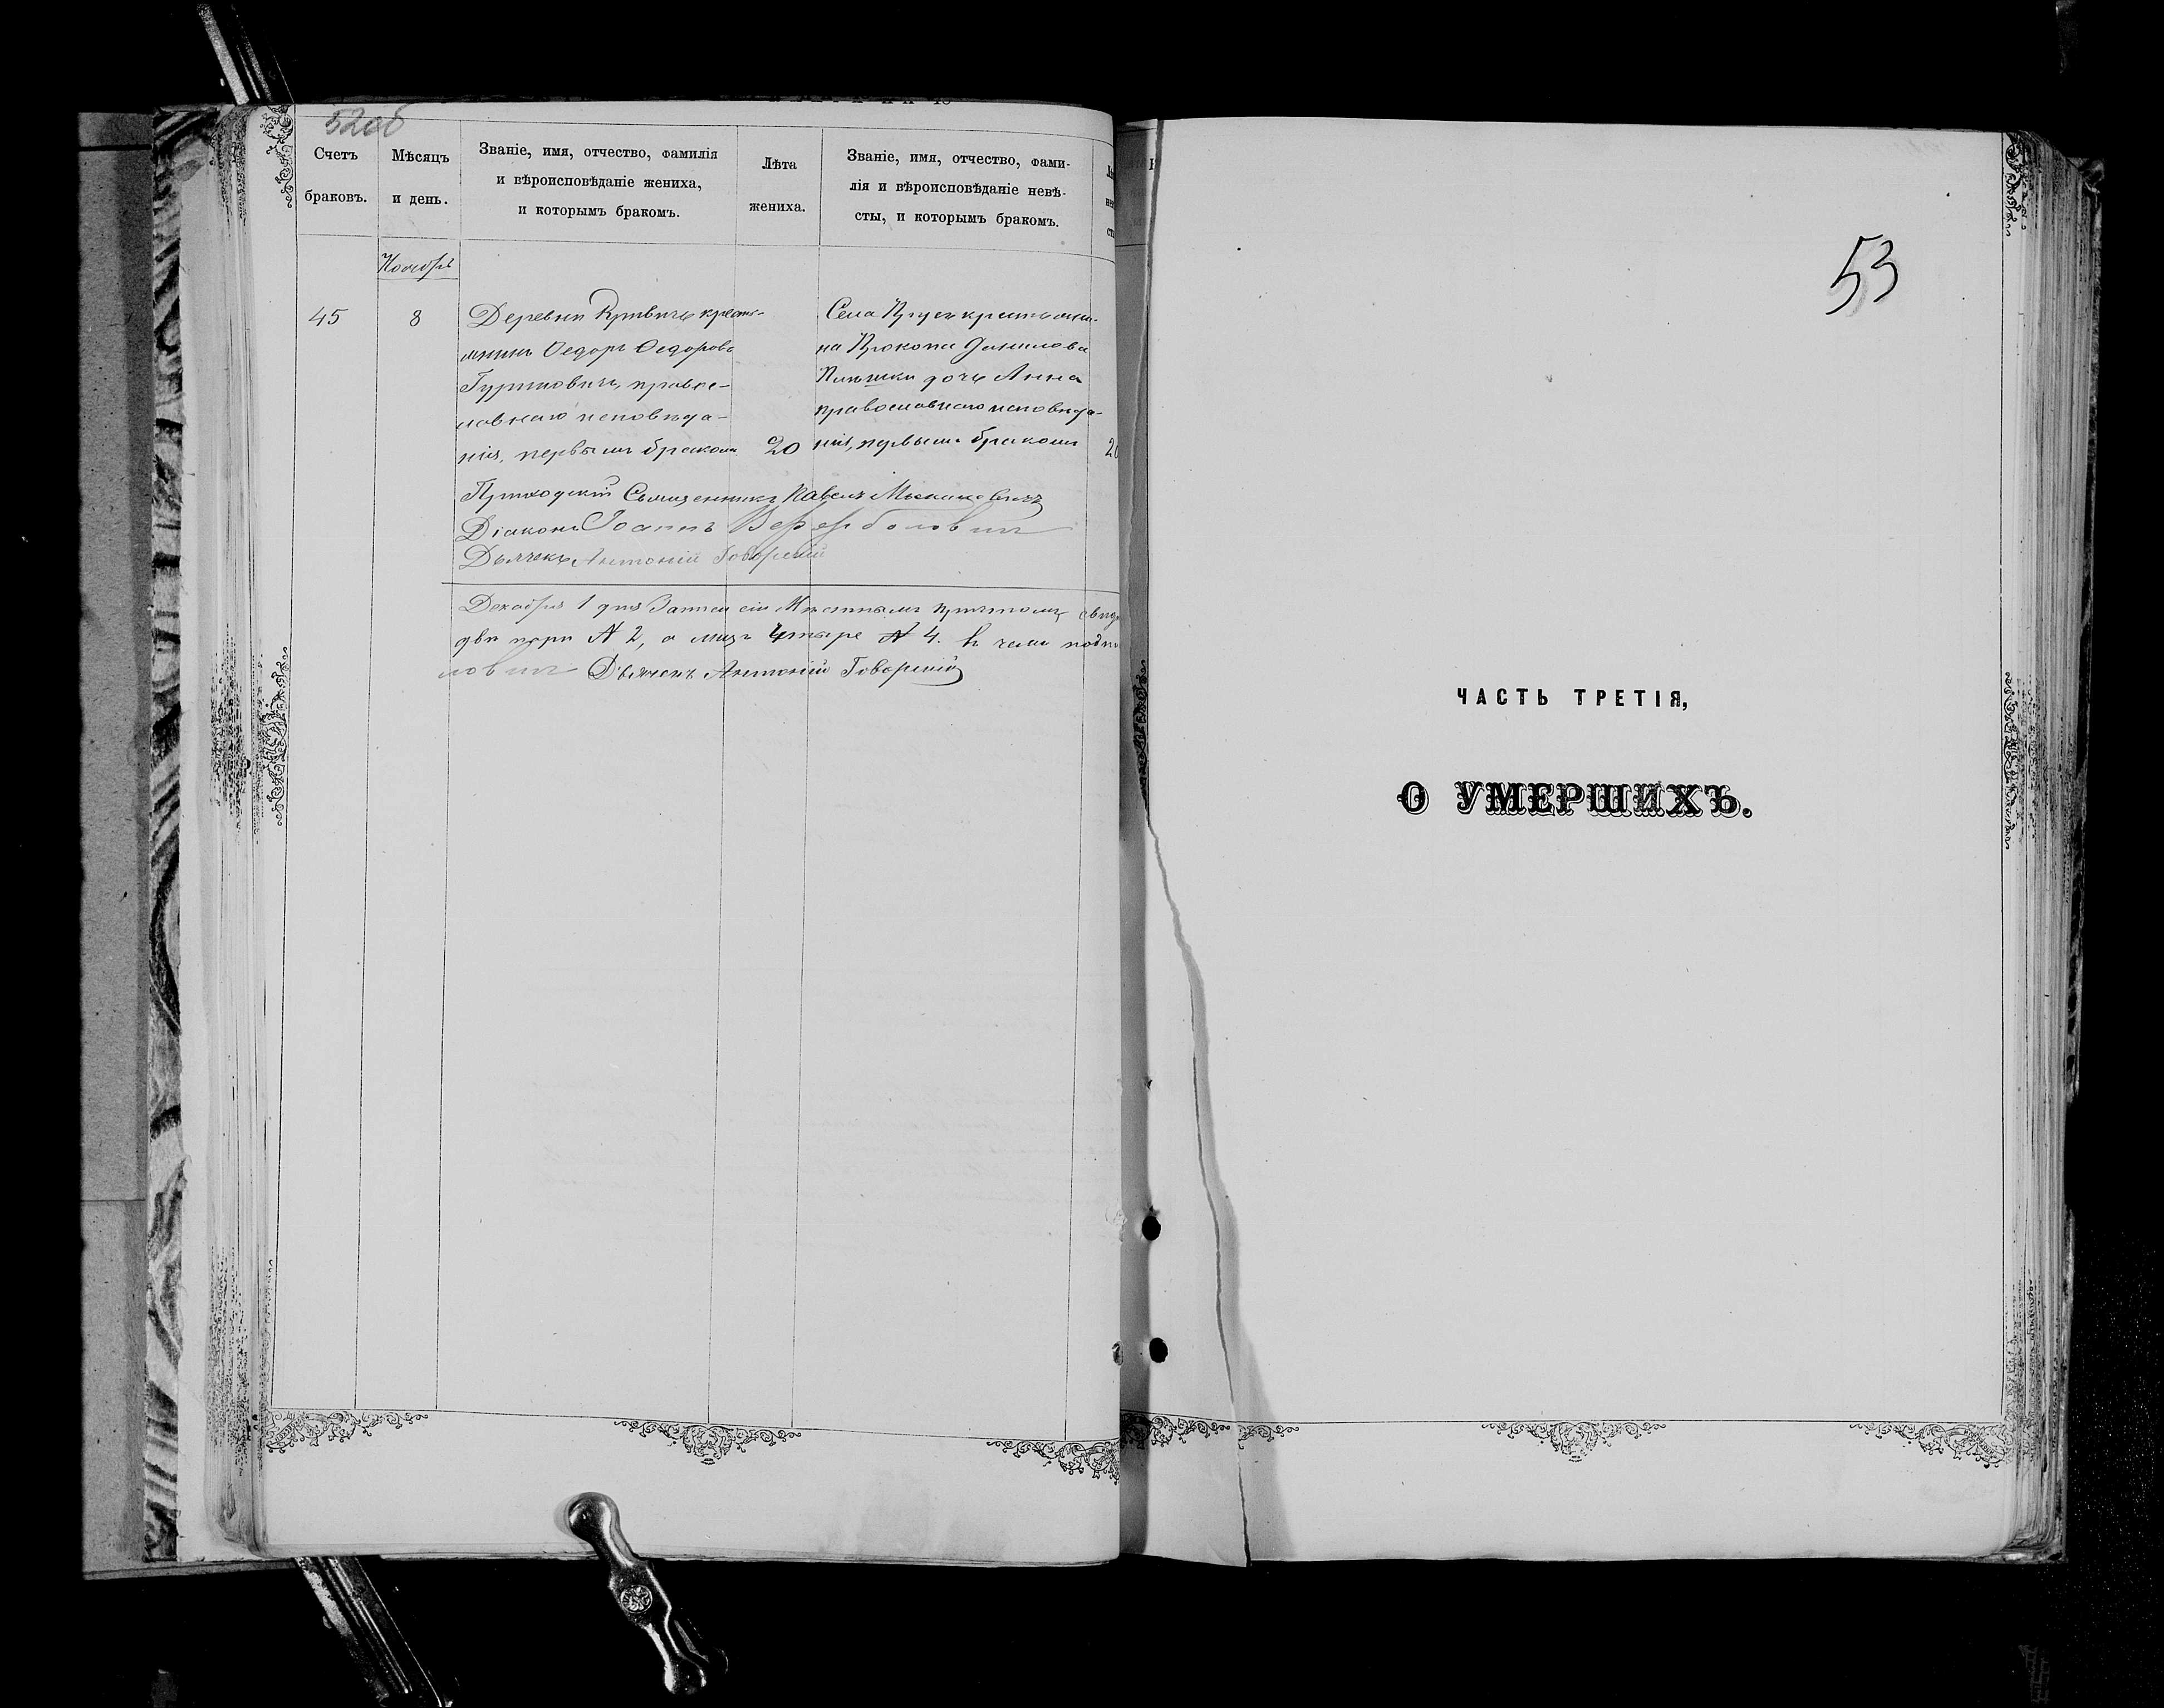 52об
Счетъ
браковъ.
Мѣсяцъ
и день.
Званіе, имя, отчество, фамилія
и вѣроисповѣданіе жениха,
и которымъ бракомъ.
Лѣта
жениха.
Званіе, имя, отчество, фами-
лія и вѣроисповѣданіе невѣ-
сты, и которымъ бракомъ.
Ноябрь
45
8
Деревни Кривичъ кресть-
янинъ Ѳедоръ Ѳедоровъ
правос-
лавнаго исповѣда-
нія, первымъ бракомъ.
20
Села крестьяни-
на Прокопія Данилова
дочь Анна
православнаго исповѣда-
нія, первымъ бракомъ
20
Приходскій Священникъ Павелъ
Діаконъ Іоаннъ Верерболовичъ
Дьячекъ Антоній Говорскій
Декабря 1 дня Записи сіи Мѣстнымъ причтомъ свид
двѣ пары № 2, а лицъ четыре № 4. въ чемъ подп
ловичъ Дьячекъ Антоній Говорскій
53
ЧАСТЬ ТРЕТІЯ,
О УМЕРШИХЪ.